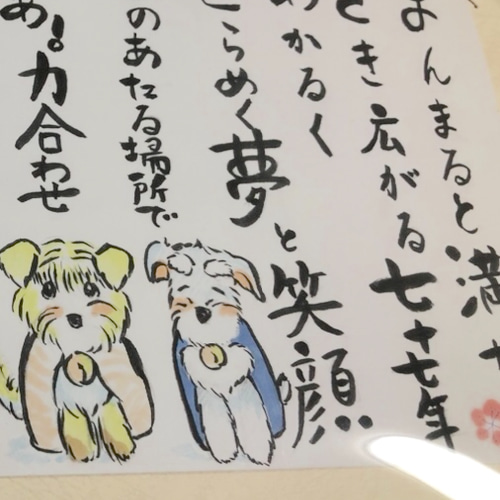 まんまると満
とき広がる七十七年
かるく
らめく夢と笑顔
のあたる場所で
力合わせ